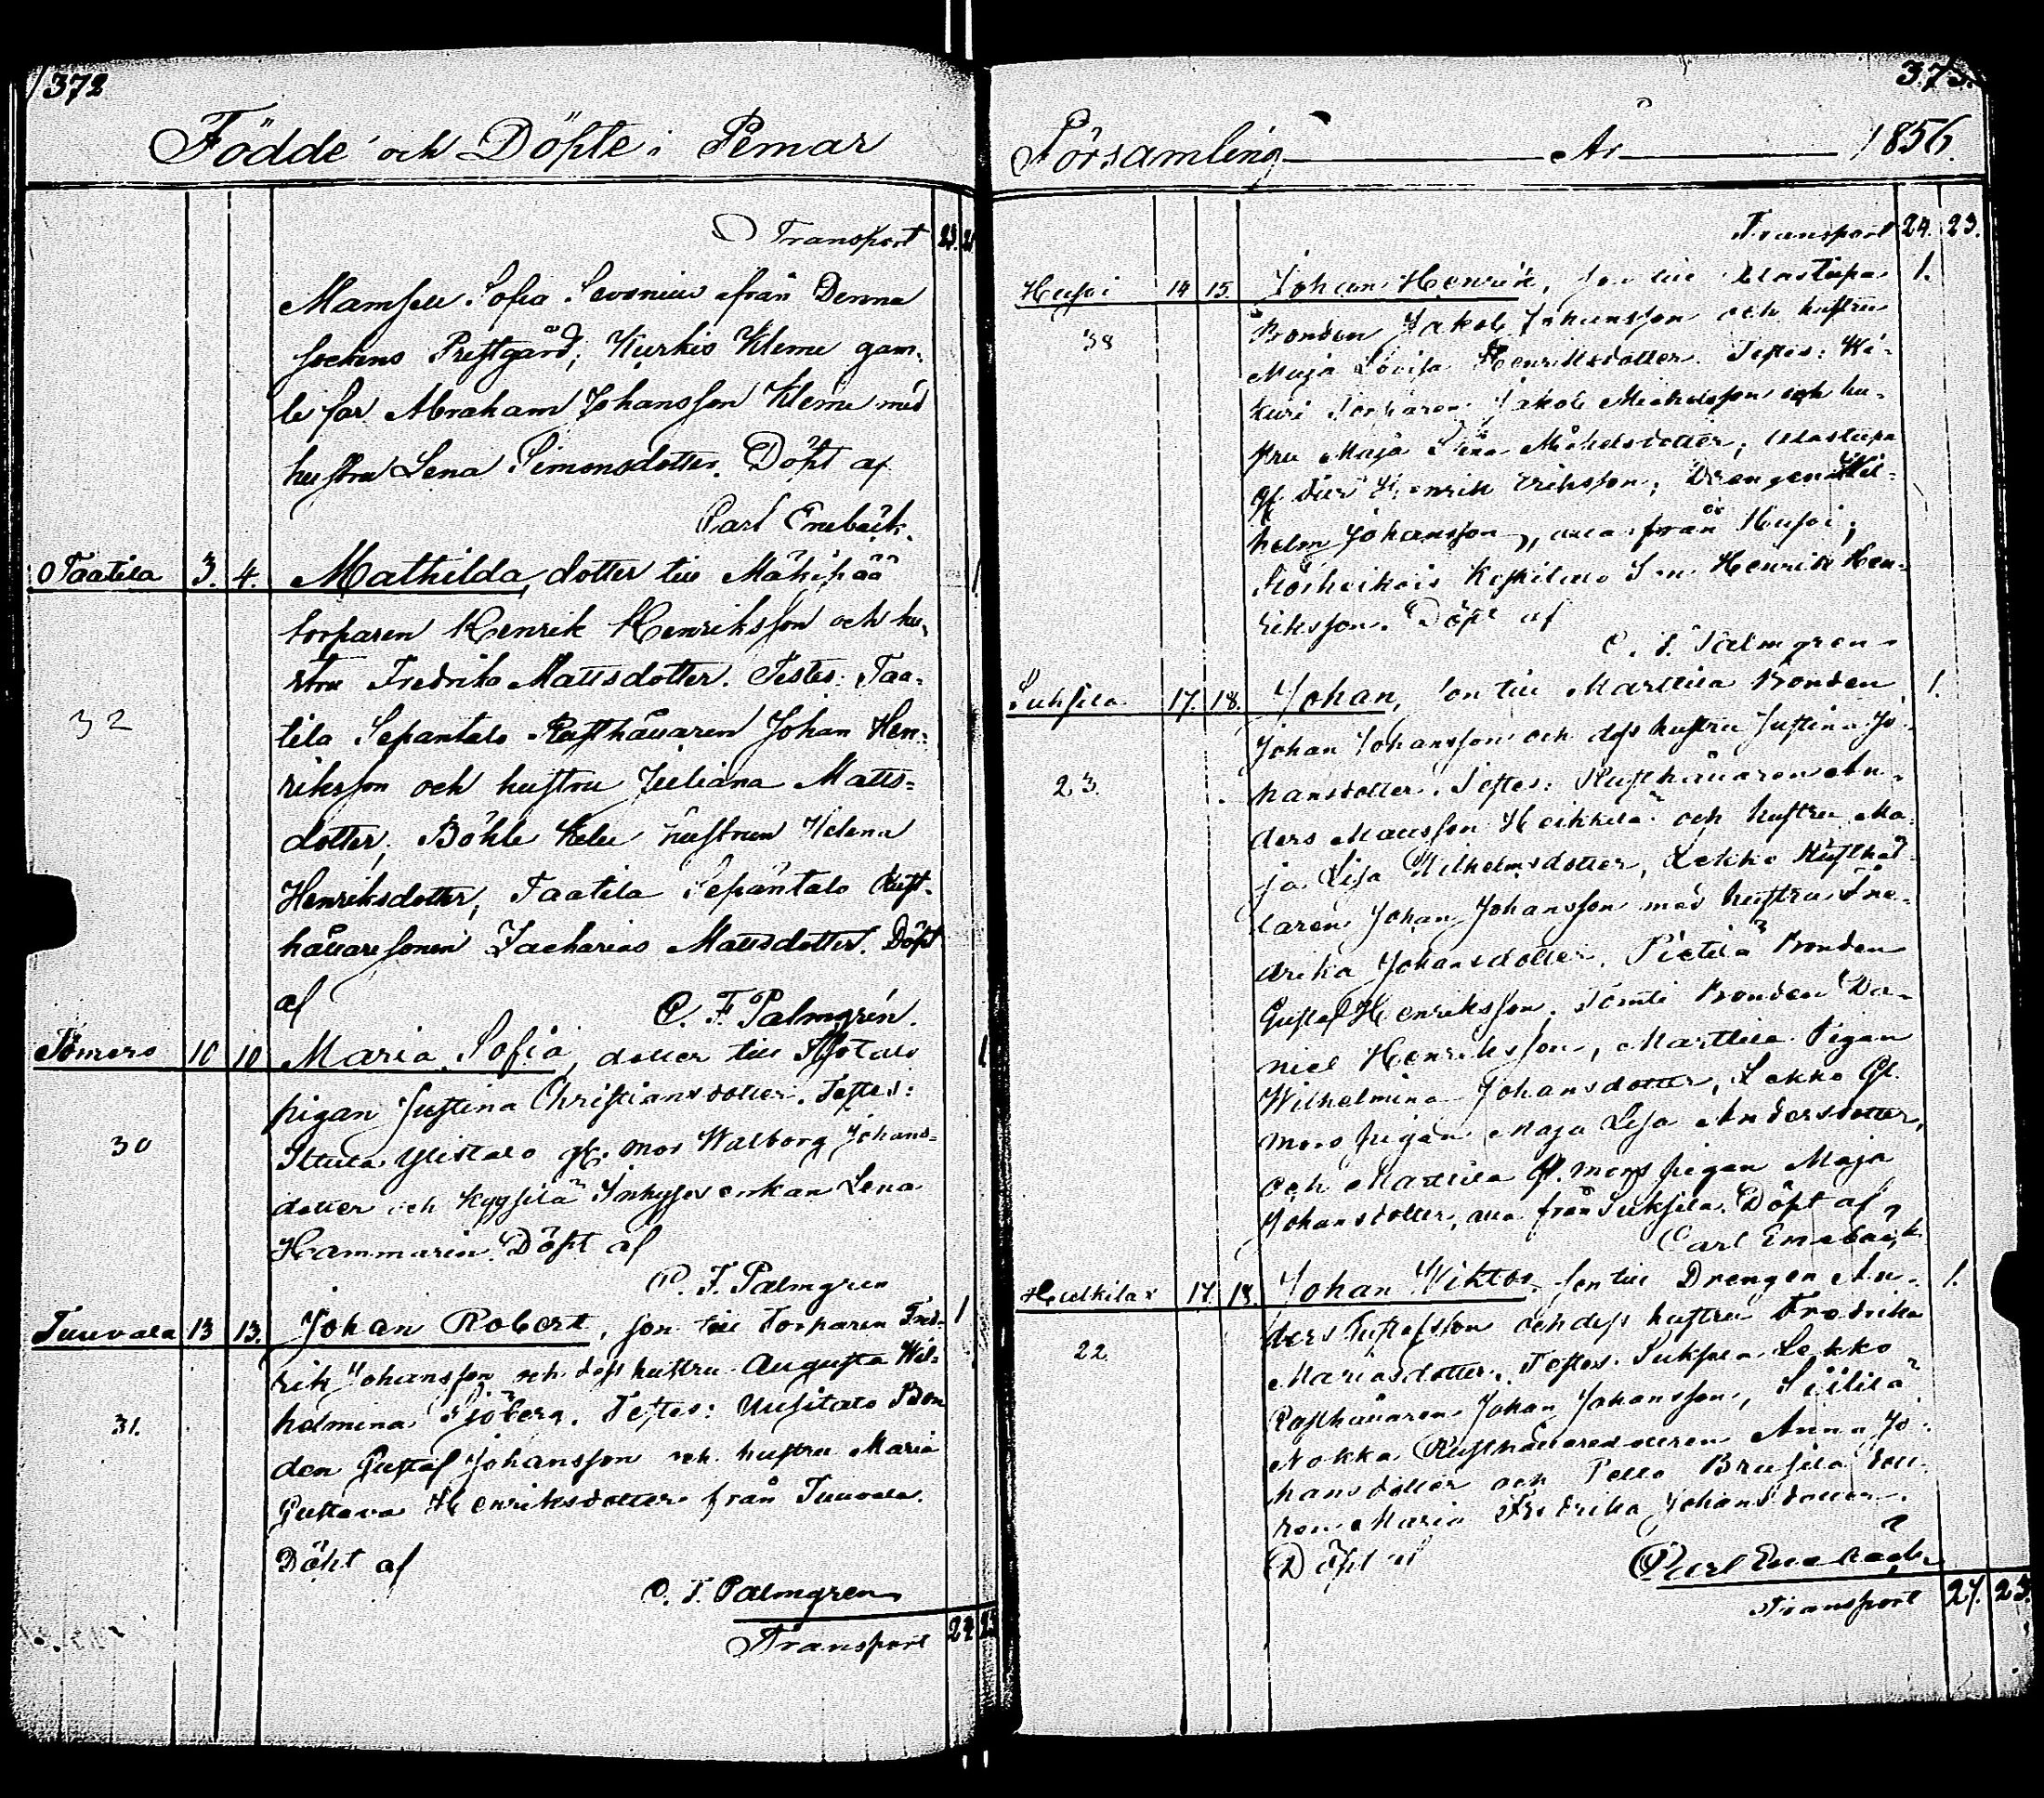 372
Födde och Döpte i Pemar
Transport 23. 21
Mamsell Sofia Sevonius från Denna
sockens Prestgård; Kurkis Kleme gam-
le far Abraham Johansson Kleme med
hustru Lena Simonsdotter. Döpt af
Carl Enebäck.
Taatila 3. 4. Mathilda, dotter till Mäkipää 1
torparen Henrik Henriksson och hu-
stru Fredrika Mattsdotter. Testes: Taa-
32
tila Sepäntalo Rusthållaren Johan Hen-
riksson och hustru Juliana Matts-
dotter, Böhle hustrun Helena
Henriksdotter, Taatila Sepäntalo Rust-
hållaresonen Zacharias Mattsdotter. Döpt
af
C. F. Palmgrén.
10 10 Maria Sofia, dotter till 1
pigan Justina Christiansdotter. Testes:
30
Ylistalo gl. mor Walborg Johans-
dotter och Inhyses enkan Lena
Hammarin. Döpt af
C. F. Palmgren
Tuuvala 13 13. Johan Robert, son till Torparen Fred- 1
rik Johansson och dess hustru Augusta Wil-
31.
helmina Sjöberg. Testes: Uusitalo Bon
den Gustaf Johansson och hustru Maria
Gustava Henriksdotter från Tuuvala.
Döpt af
C. F. Palmgren
Transport 24 23
373.
Församling År 1856.
Transport 24. 23.
14 15. Johan Henrik, son till Ulastupa 1.
38
Bonden Jakob Johansson och hustru
Maja Lovisa Henriksdotter. Testes: Ki-
kuri Torparen Jakob Michelsson och hu-
stru Maja Stina Michelsdotter; Ulastupa
gf. Henrik Eriksson; Drengen Wil-
helm Johansson, alla från
Keskitalo Henrik Hen-
riksson. Döpt af
C. F. Palmgren
Suksela 17. 18. Johan, son till Marttila Bonden 1.
Johan Johansson och dess hustru Justina Jo-
23.
hansdotter. Testes: Rusthållaren An-
ders Mattsson Heikkilä och hustru Ma-
ja Lisa Wilhelmsdotter, Lekko Rusthål-
laren Johan Johansson med hustru Fre-
drika Johansdotter. Pietilä Bonden
Gustaf Henriksson. Tomti Bonden Da-
niel Henriksson, Marttila Pigan
Wilhelmina Johansdotter, Lekko Gl.
mors pigan Maja Lisa Andersdotter,
och Marttila Gl. mors pigan Maja
Johansdotter, alla från Suksela. Döpt af
Carl Enebäck
17. 18. Johan Wiktor, son till Drengen An- 1.
ders Gustafsson och dess hustru Fredrika
22.
Mariasdotter. Testes: Suksela Lekko
Rusthållaren Johan Johansson,
Nokka Rusthållaredottren Anna Jo-
hansdotter och Pello Brusila dott-
ren Maria Fredrika Johansdotter.
Döpt af
Carl Enebäck
Transport 27. 23.